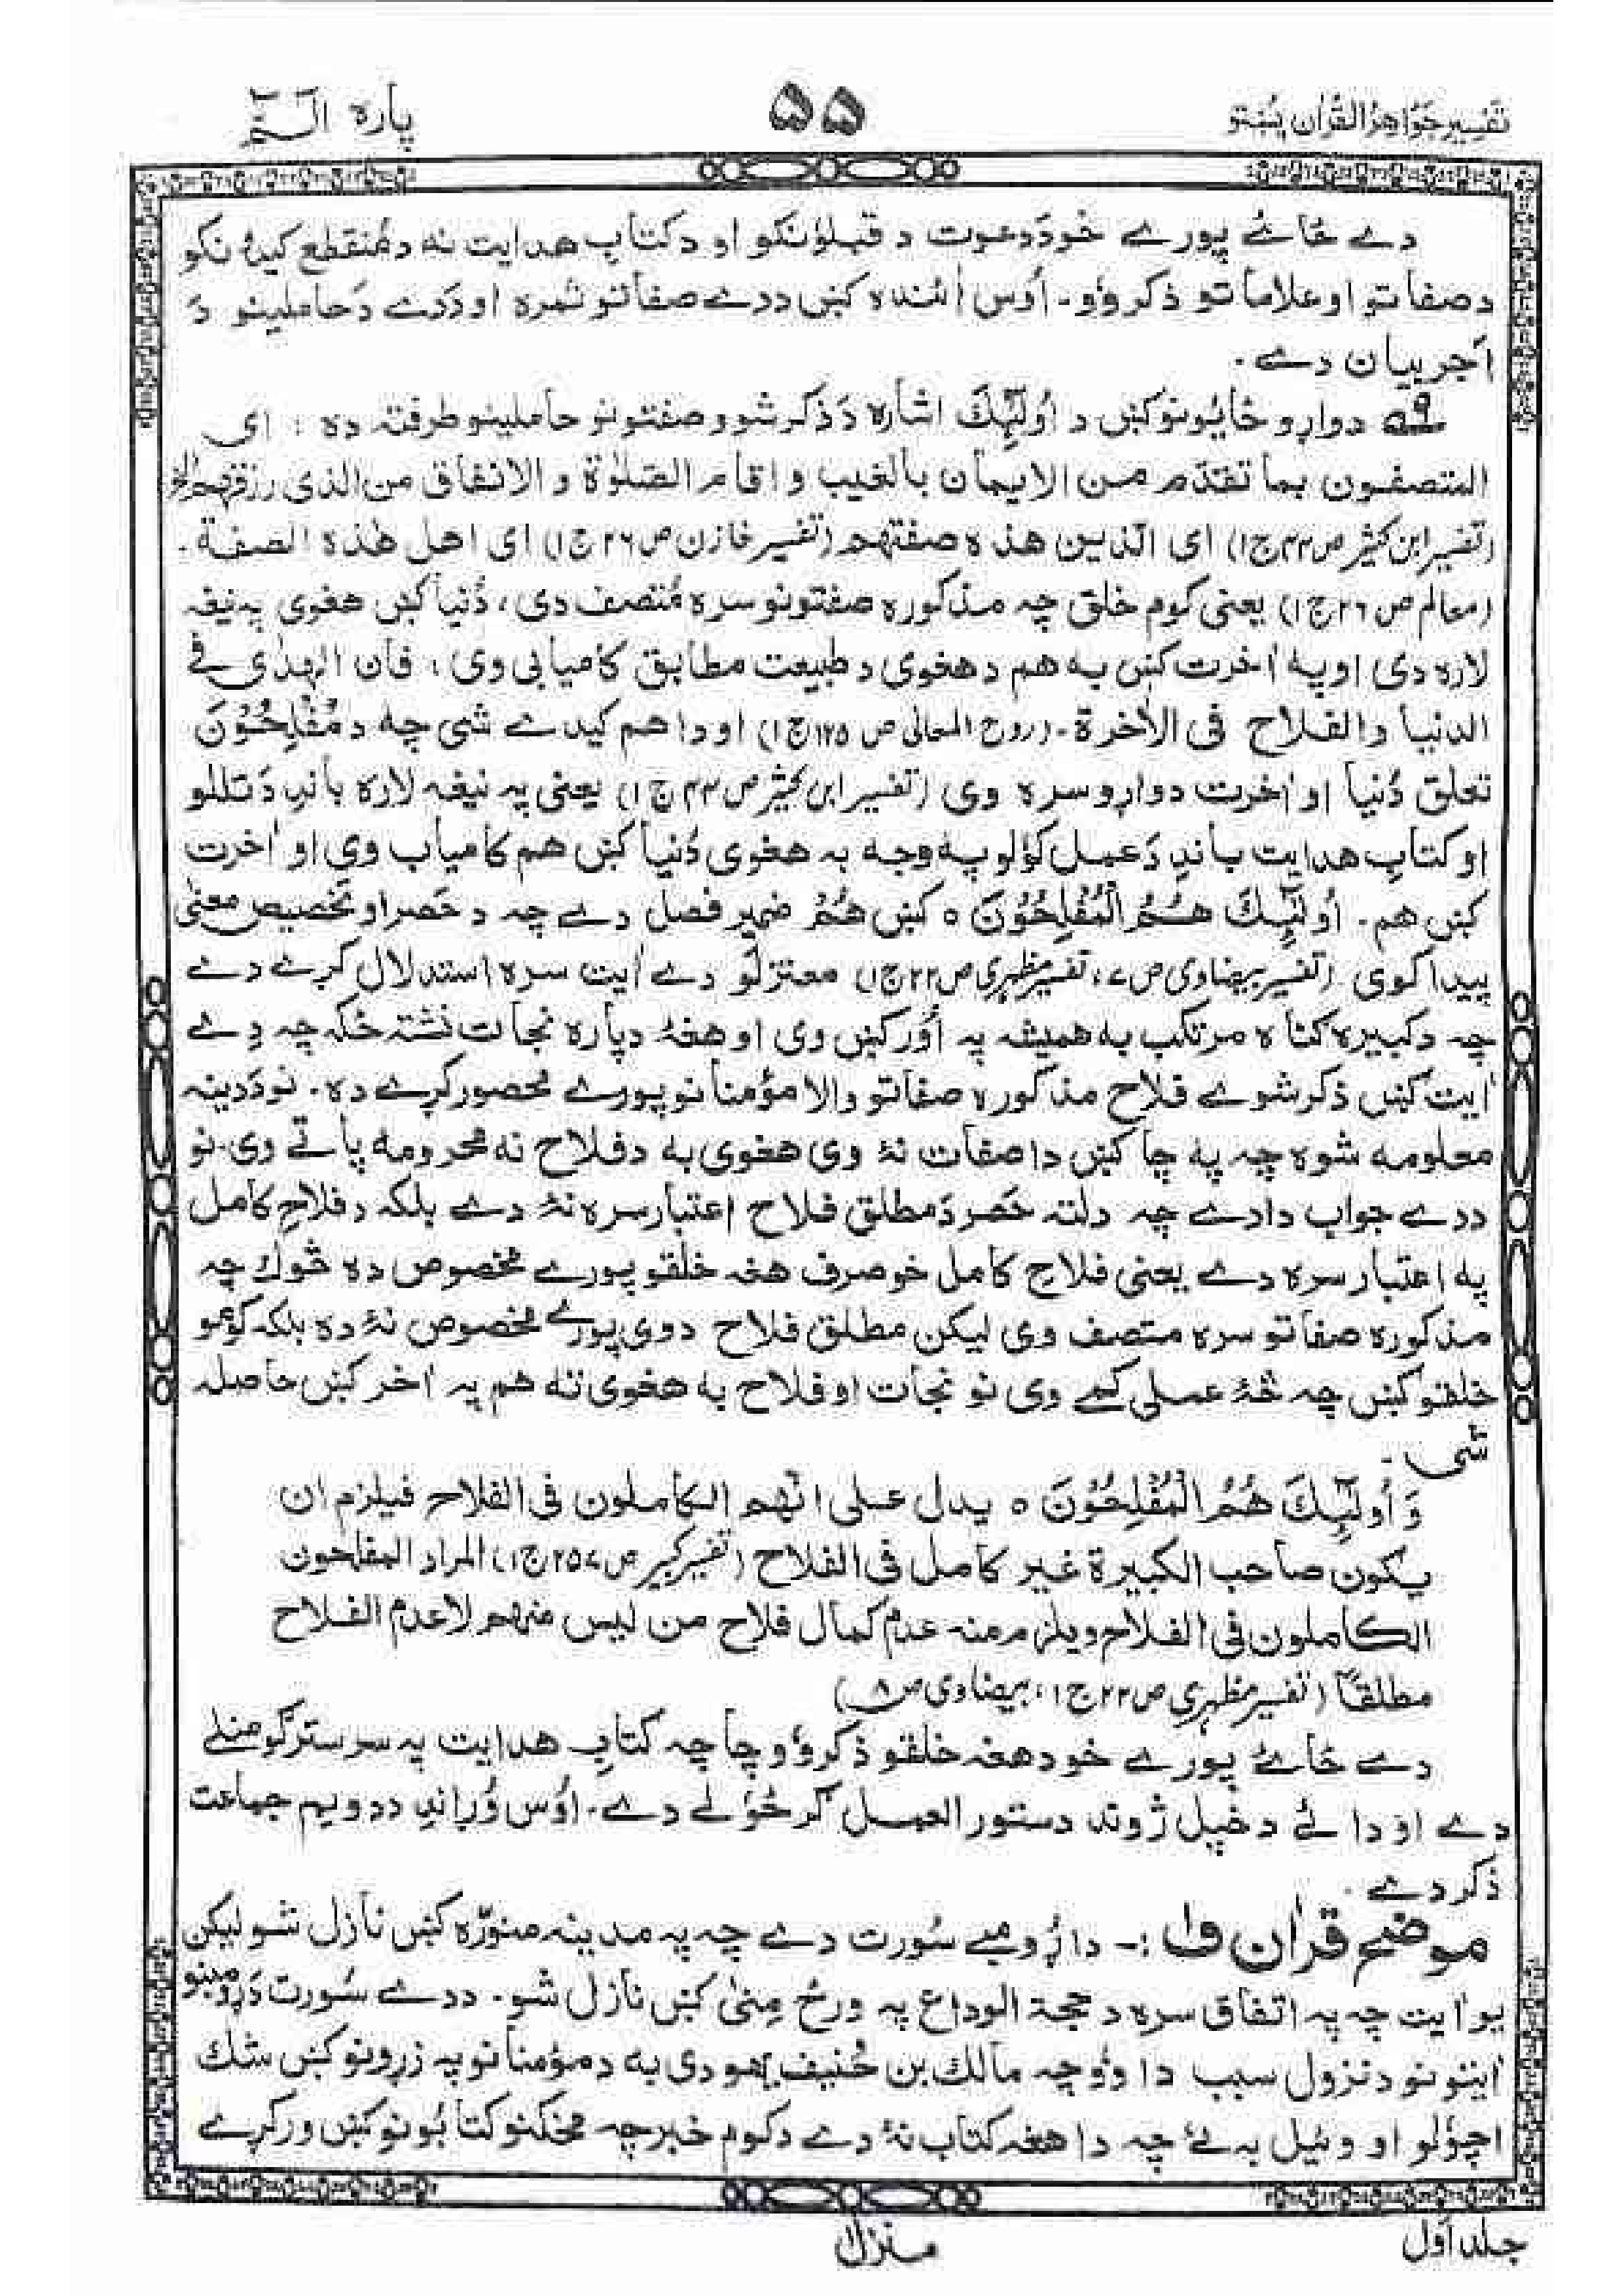 تفسیر جواهر القرآن پښتو
۵۵
پاره الٓـمّٓ
دے ځائے پورے خو د دعوت د قبلوُنکو او د کتابِ هدایت نه د مُنقطع کیدُونکو
د صفاتو او علاماتو ذکر وُو۔ اوُس اٰئنده کښ د دے صفاتو ثمره او د دے دَ حاملینو دَ
اجر بیان دے۔
۹ دواړو ځایُونو کښ د اُولٰٓئِكَ اشاره دَ ذکر شوو صفتونو حاملینو طرفته ده : ای
المتصفون بما تقدّم من الایمان بالغیب و اقام الصّلوٰة و الانفاق من الذی رزقهم الخ
(تفسیر ابن کثیر ص۴۳ ج۱) ای الّذین هذه صفتهم (تفسیر خازن ص۲۶ ج۱) ای اهل هٰذه الصفة۔
(معالم ص۲۶ ج۱) یعنی کوم خلق چه مذکوره صفتونو سره مُتصف دی، دُنیا کښ هغوی په نیغه
لاره دی او په اٰخرت کښ به هم د هغوی د طبیعت مطابق کامیابی وی، فان الهدٰی فے
الدنیا والفلاح فی الاٰخرة۔ (روح المعانی ص۱۲۵ ج۱) او دا هم کیدے شی چه د مُفْلِحُوْنَ
تعلق دُنیا او اٰخرت دواړو سره وی (تفسیر ابن کثیر ص۴۳ ج۱) یعنی په نیغه لاره باندِ دَ تللو
او کتابِ هدایت باندِ دَ عمل کوُلو په وجه به هغوی دُنیا کښ هم کامیاب وی او اٰخرت
کښ هم۔ اُولٰٓئِكَ هُمُ الْمُفْلِحُوْنَ ه کښ هُمُ ضمیر فصل دے چه د حَصر او تخصیص معنٰی
پیدا کوی (تفسیر بیضاوی ص۷، تفسیر مظهری ص۲۲ ج۱) معتزلوُ دے اٰیت سره استدلال کړے دے
چه د کبیره ګناه مرتکب به همیشه په اوُر کښ وی او هغهٔ دپاره نجات نشته ځکه چه دے
اٰیت کښ ذکر شوے فلاح مذکوره صفاتو والا مؤمنانو پورے محصور کړے ده۔ نو دَ دینه
معلومه شوه چه په چا کښ دا صفات نهٔ وی هغوی به د فلاح نه محرومه پاتے وی۔ نو
د دے جواب دا دے چه دلته حَصر دَ مطلق فلاح اعتبار سره نهٔ دے بلکه د فلاحِ کامل
په اعتبار سره دے یعنی فلاحِ کامل خو صرف هغه خلقو پورے مخصوص ده څوك چه
مذکوره صفاتو سره متصف وی لیکن مطلق فلاح د دوی پورے مخصوص نهٔ ده بلکه کومو
خلقو کښ چه څهٔ عملی کمے وی نو نجات او فلاح به هغوی ته هم په اٰخر کښ حاصله
شی۔
وَ اُولٰٓئِكَ هُمُ الْمُفْلِحُوْنَ ه یدل علی انّهم الکاملون فی الفلاح فیلزم ان
یکون صاحب الکبیرة غیر کامل فی الفلاح (تفسیر کبیر ص۲۵۷ ج۱) المراد المفلحون
الکاملون فی الفلاح ویلزم منه عدم کمال فلاح من لیس منهم لا عدم الفلاح
مطلقًا (تفسیر مظهری ص۲۲ ج۱، بیضاوی ص۸)
دے ځائے پورے خو د هغه خلقو ذکر وُو چا چه کتابِ هدایت په سر سترګو منلے
دے او دائے د خپل ژوند دستور العمل ګرځوُلے دے۔ اوُس وُړاندِ د دویم جماعت
ذکر دے۔
موضح قرآن ف۱ :۔ دا ړومبے سُورت دے چه په مدینه منوّره کښ نازل شو لیکن
یو اٰیت چه په اتفاق سره د حجة الوداع په ورځ مِنیٰ کښ نازل شو۔ د دے سُورت دَ ړومبنو
اٰیتونو د نزول سبب دا وُو چه مالك بن حُنیف یهودی به د مؤمنانو په زړونو کښ شك
اچوُلو او وئیل به ئے چه دا هغه کتاب نهٔ دے د کوم خبر چه مخکنو کتابُونو کښ ورکړے
جلد اوّل
منزل